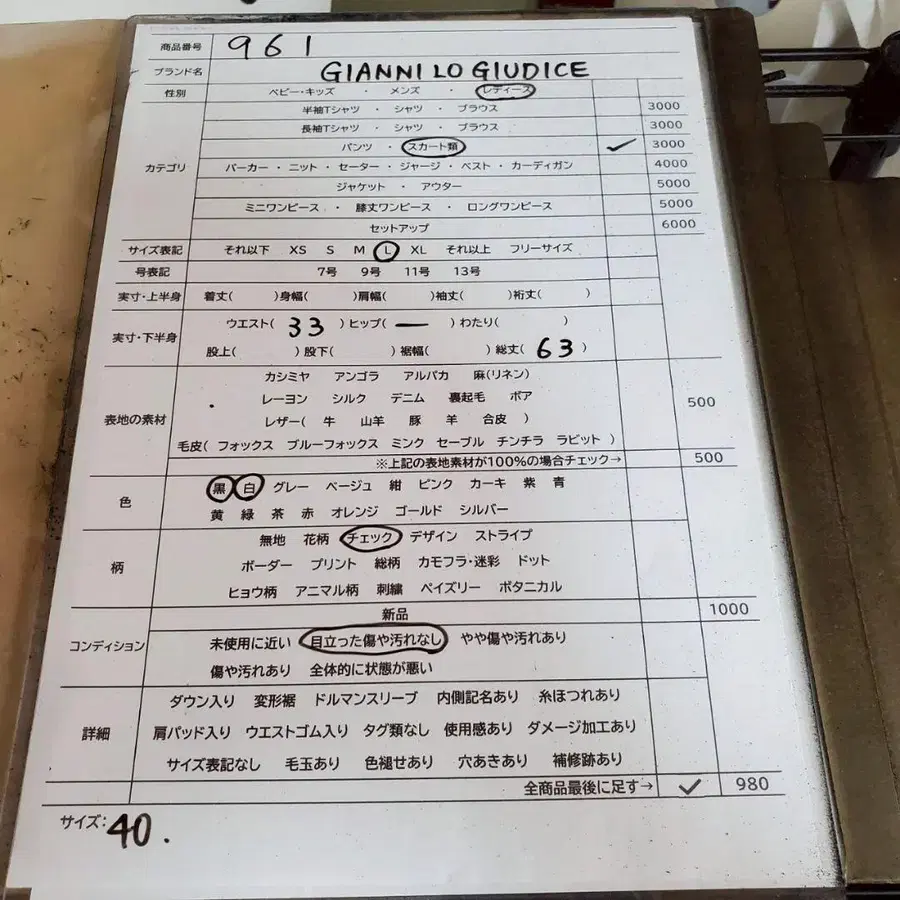 商品番号 961
ブランド名 GIANNI LO GIUDICE
性別 ベビー・キッズ ・ メンズ ・ レディース
半袖Tシャツ ・ シャツ ・ ブラウス 3000
長袖Tシャツ ・ シャツ ・ ブラウス 3000
パンツ ・ スカート類 ✓ 3000
カテゴリ パーカー ・ ニット ・ セーター ・ ジャージ ・ ベスト ・ カーディガン 4000
ジャケット ・ アウター 5000
ミニワンピース ・ 膝丈ワンピース ・ ロングワンピース 5000
セットアップ 6000
サイズ表記 それ以下 XS S M L XL それ以上 フリーサイズ
号表記 7号 9号 11号 13号
実寸・上半身 着丈( )身幅( )肩幅( )袖丈( )裄丈( )
実寸・下半身 ウエスト( 33 )ヒップ( ー )わたり( )
股上( )股下( )裾幅( )総丈( 63 )
カシミヤ アンゴラ アルパカ 麻(リネン)
レーヨン シルク デニム 裏起毛 ボア 500
表地の素材 レザー( 牛 山羊 豚 羊 合皮 )
毛皮( フォックス ブルーフォックス ミンク セーブル チンチラ ラビット )
※上記の表地素材が100%の場合チェック→ 500
色 黒 白 グレー ベージュ 紺 ピンク カーキ 紫 青
黄 緑 茶 赤 オレンジ ゴールド シルバー
無地 花柄 チェック デザイン ストライプ
柄 ボーダー プリント 総柄 カモフラ・迷彩 ドット
ヒョウ柄 アニマル柄 刺繍 ペイズリー ボタニカル
新品 1000
コンディション 未使用に近い 目立った傷や汚れなし やや傷や汚れあり
傷や汚れあり 全体的に状態が悪い
ダウン入り 変形裾 ドルマンスリーブ 内側記名あり 糸ほつれあり
詳細 肩パッド入り ウエストゴム入り タグ類なし 使用感あり ダメージ加工あり
サイズ表記なし 毛玉あり 色褪せあり 穴あきあり 補修跡あり
全商品最後に足す→ ✓ 980
サイズ: 40.